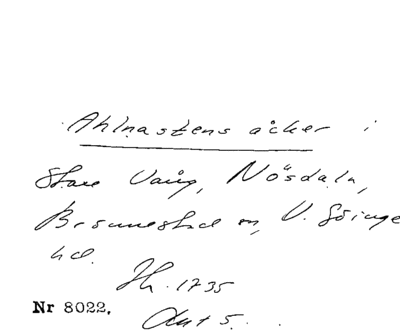 Ahlnastens åcker i
Stora Vång, Nösdala,
Brönnestad sn, V. Göinge
hd. Jh. 1735
Nr 8022.